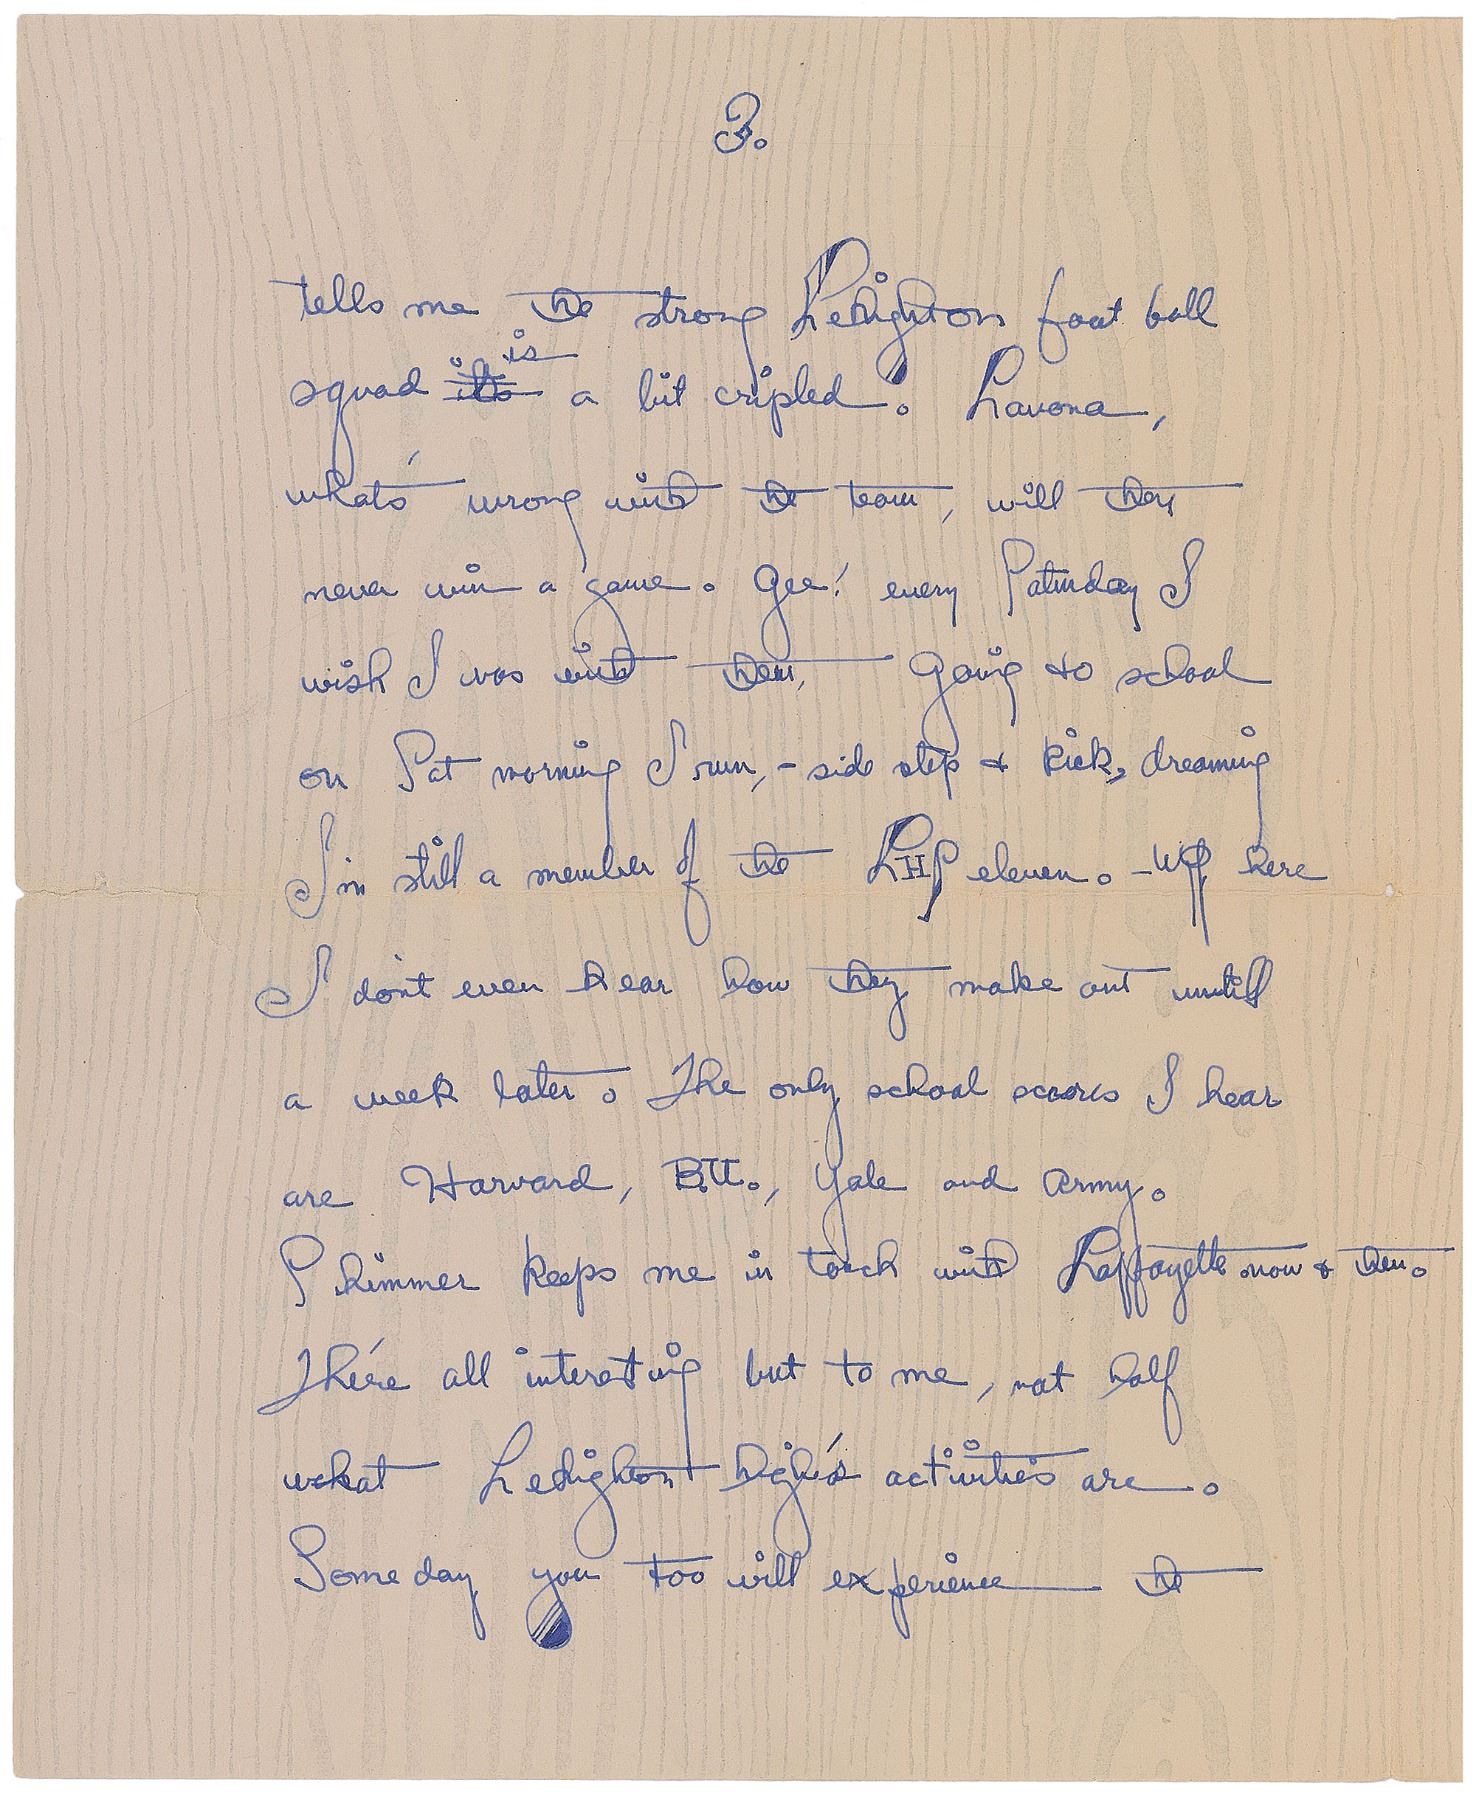 3.
tells me the strong Lehighton foot ball
is
squad its a bit cripled. Lavona,
what's wrong with the team, will they
never win a game. Gee! every Saturday I
wish I was with them, Going to school
on Sat morning I run, - side step & kick, dreaming
I'm still a member of the LHS eleven. - Up here
I don't even hear how they make out untill
a week later. The only school scores I hear
are Harvard, B.U., Yale and Army.
Skimmer keeps me in touch with Laffayette now & then.
The're all interesting but to me, not half
what Lehighton high's activities are.
Someday you too will experience the